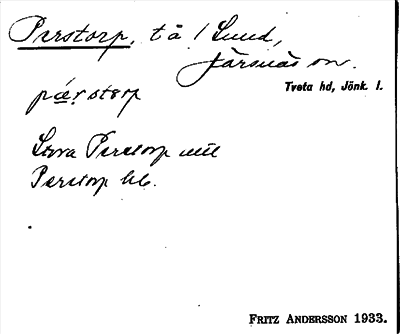 Perstorp, tå / Lund,
Järsnäs sn.
Tveta hd, Jönk. l.
pæ̀rstørp
Stora Perstorp utl
Perstorp hb.
FRITZ ANDERSSON 1933.